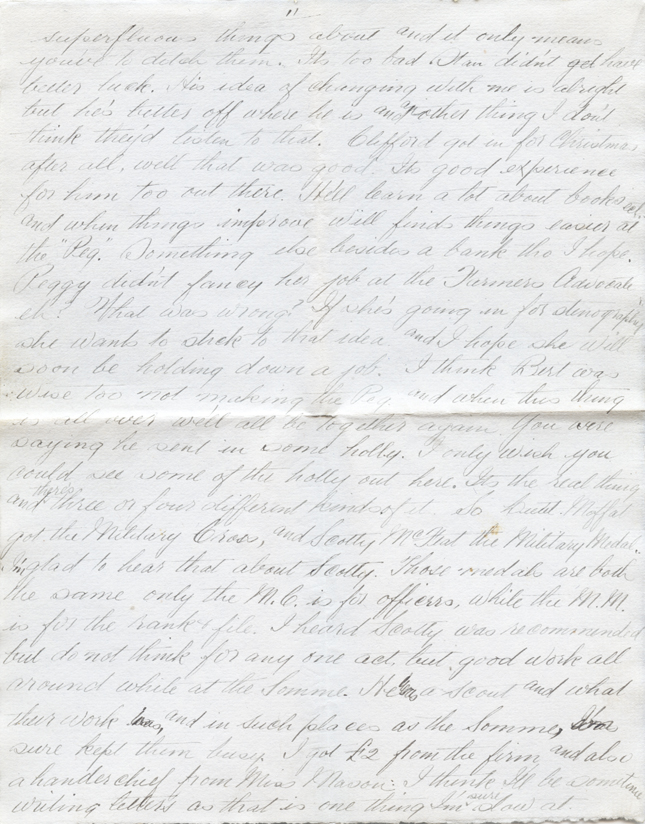 11
superfluous things about and it only means
you've to ditch them. Its too bad Stan didn't get have
better luck. His idea of changing with me is alright
but he's better off where he is and another thing I don't
think they'd listen to that. Clifford got in for Christmas
after all, well that was good. Its good experience
for him too out there. He'll learn a lot about books etc.
and when things improve will find things easier at
the "Peg". Something else besides a bank tho I hope.
Peggy didn't fancy her job at the Farmers Advocate
eh? What was wrong? If she's going in for stenography
she wants to stick to that idea and I hope she will
soon be holding down a job. I think Burt was
wise too not making the Peg and when this thing
is all over we'll all be together again. You were
saying he sent in some holly. I only wish you
could see some of the holly out here. Its the real thing
and there's three or four different kinds of it. So Lieut. Moffat
got the Military Cross, and Scotty McC the Military Medal.
I'm glad to hear that about Scotty. Those medals are both
the same only the M.C. is for officers, while the M.M.
is for the rank & file. I heard Scotty was recommended
but do not think for any one act, but good work all
around while at the Somme. He was a scout and what
their work was, and in such places as the Somme,
sure kept them busy. I got £2 from the firm and also
a handerchief from Miss Nason. I think I'll be sometime
writing letters as that is one thing I'm sure slow at.